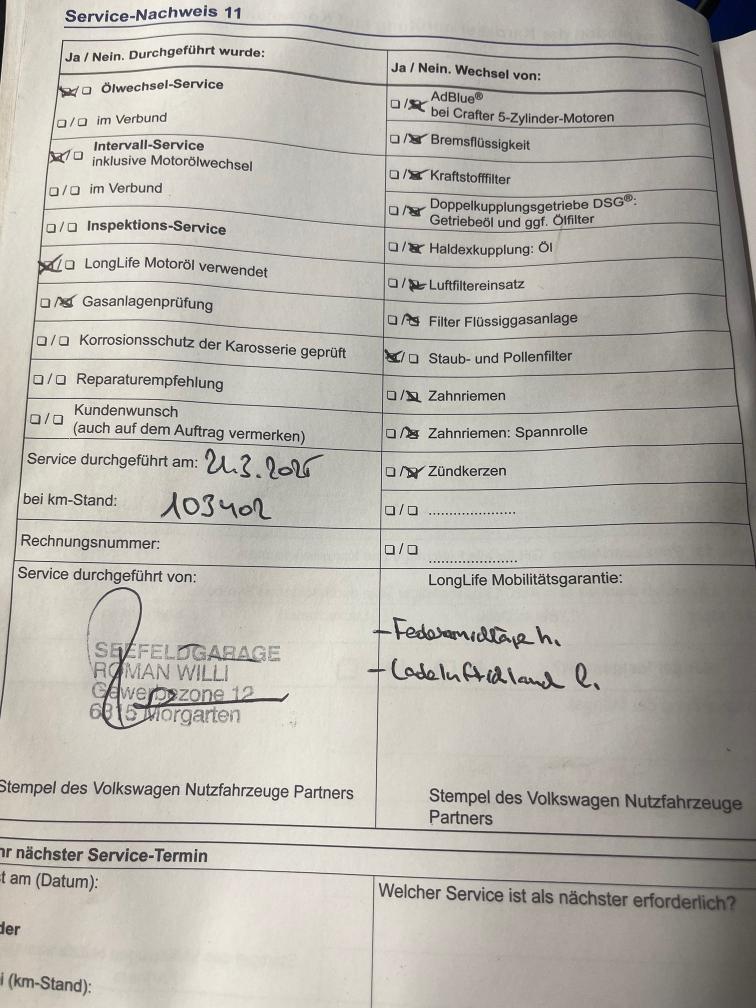 Service-Nachweis 11
Ja / Nein. Durchgeführt wurde:
Ölwechsel-Service
im Verbund
Intervall-Service
inklusive Motorölwechsel
im Verbund
Inspektions-Service
LongLife Motoröl verwendet
Gasanlagenprüfung
Korrosionsschutz der Karosserie geprüft
Reparaturempfehlung
Kundenwunsch
(auch auf dem Auftrag vermerken)
Service durchgeführt am: 21.3.2025
bei km-Stand: 103402
Rechnungsnummer:
Service durchgeführt von:
SEEFELDGARAGE
ROMAN WILLI
Gewerbezone 12
6315 Morgarten
Stempel des Volkswagen Nutzfahrzeuge Partners
Ja / Nein. Wechsel von:
AdBlue®
bei Crafter 5-Zylinder-Motoren
Bremsflüssigkeit
Kraftstofffilter
Doppelkupplungsgetriebe DSG®:
Getriebeöl und ggf. Ölfilter
Haldexkupplung: Öl
Luftfiltereinsatz
Filter Flüssiggasanlage
Staub- und Pollenfilter
Zahnriemen
Zahnriemen: Spannrolle
Zündkerzen
......................
......................
LongLife Mobilitätsgarantie:
h.
Stempel des Volkswagen Nutzfahrzeuge
Partners
hr nächster Service-Termin
t am (Datum):
der
i (km-Stand):
Welcher Service ist als nächster erforderlich?